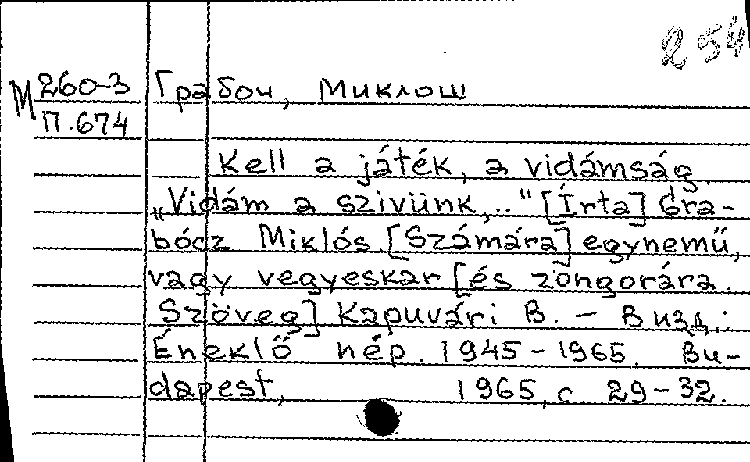 254
М 260-3 Грабоч, Миклош
П.674
Kell a játék, a vidámság.
„Vidám a szivünk,.." [Írta] Gra-
bócz Miklós [Számára] egynemű,
vagy vegyeskar [és zongorára.
Szöveg] Kapuvári B. – В изд.:
Éneklő nép. 1945-1965. Bu-
dapest, 1965, с 29-32.